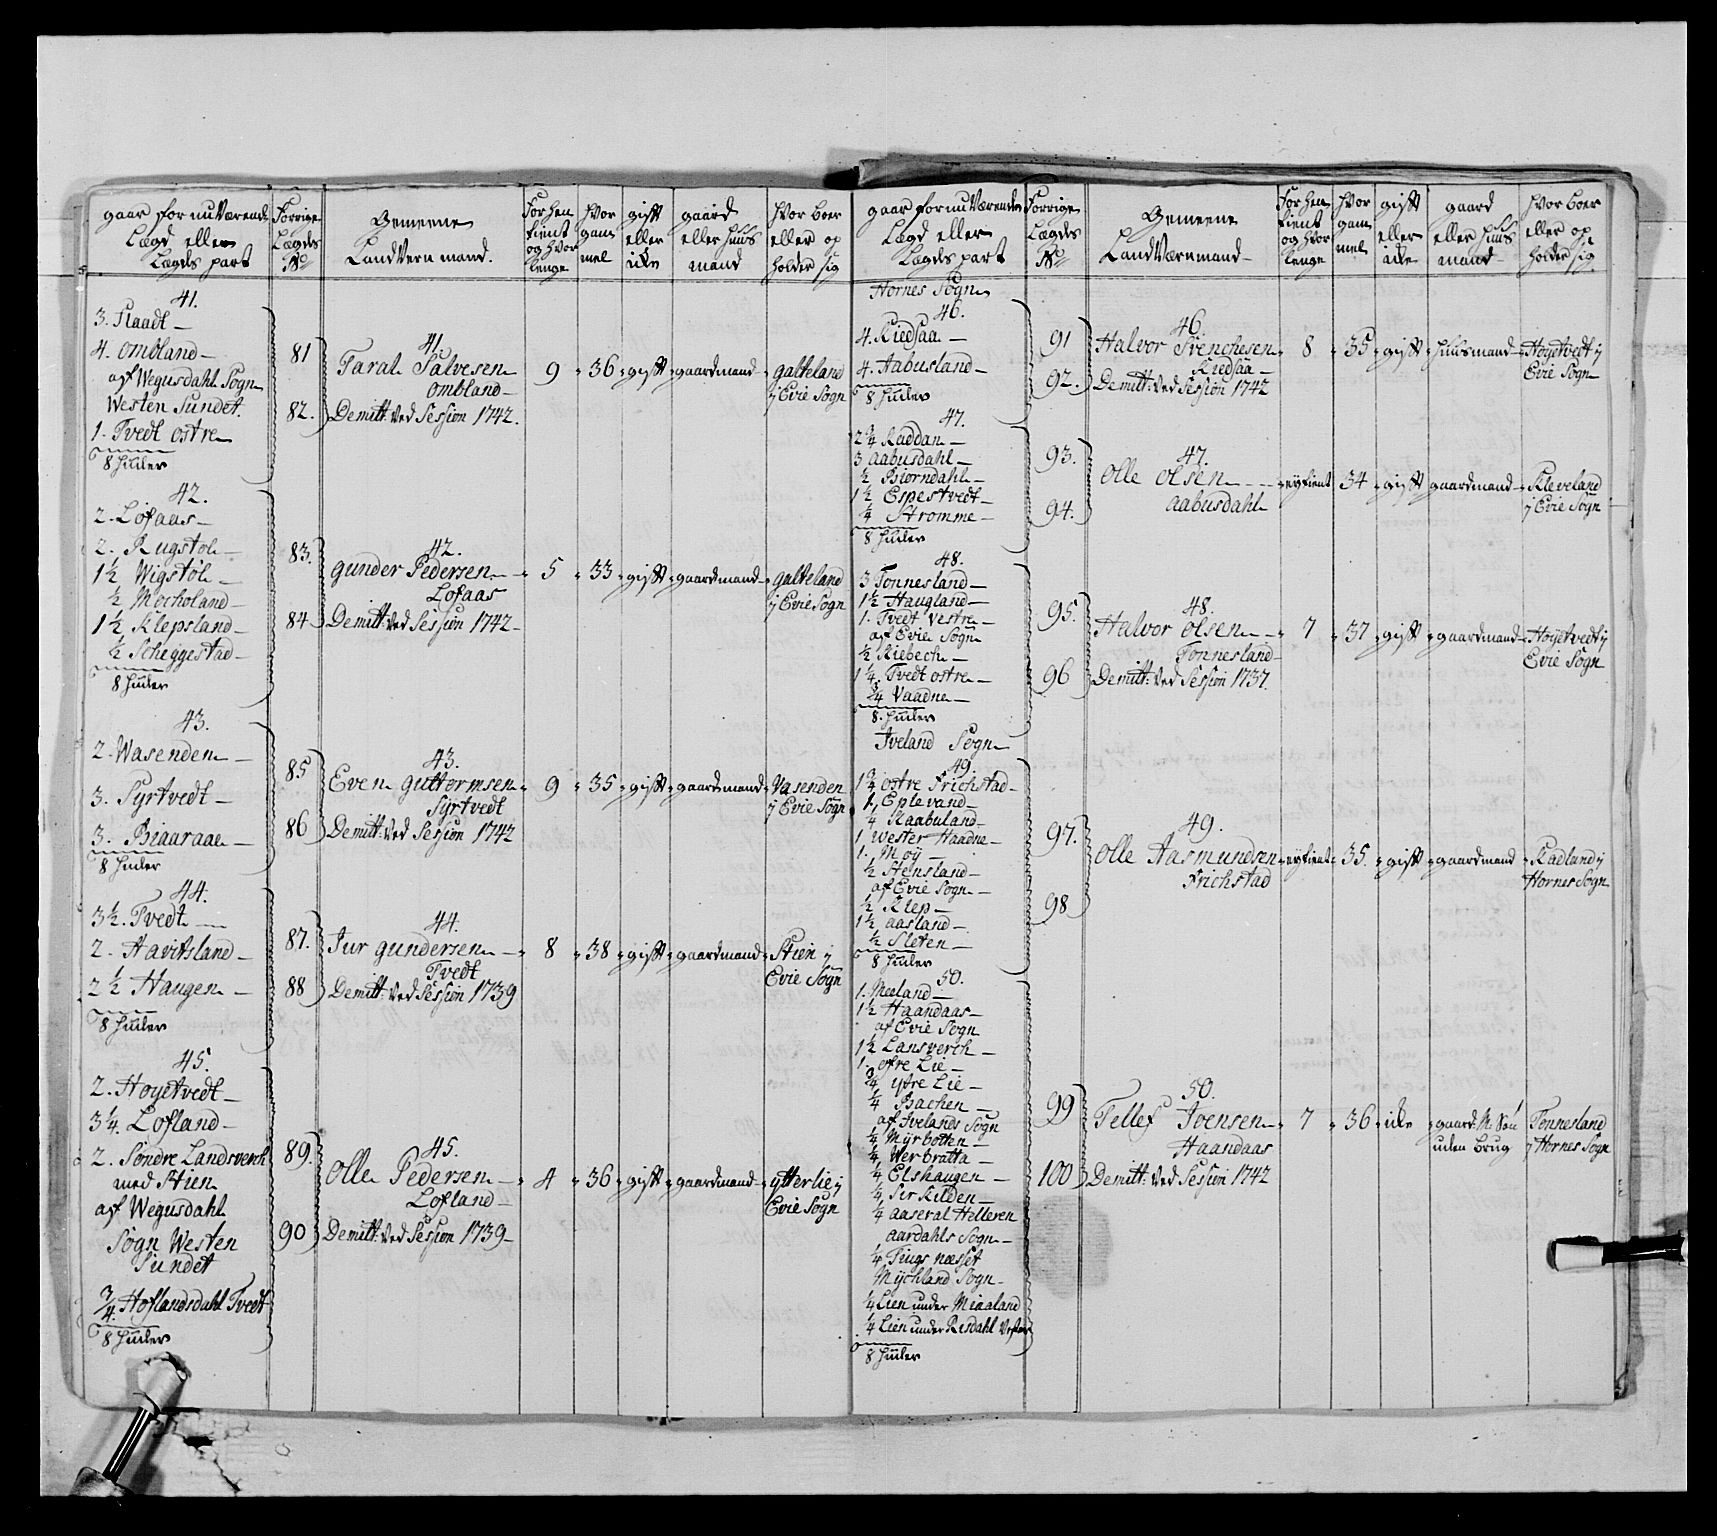 gaar for nu Værende
Lægd eller
Lægds part
Forrige
Lægds
No
Gemeene
Landvern mand.
For hen
tient
og hvor
lenge
hvor
gam
mel
gift
eller
icke
gaard
eller huus
mand
hvor boer
eller op
holder sig
41.
3. Flaadt
4. Ombland
af Wegusdahl Sogn
Westen Sundet.
1. Tvedt ostre
8 huder
81
82.
41.
Taral Salvesen
Ombland
Demitt: Ved Session 1742.
9
36
gift
gaardmand
galteland
j Evie Sogn
42.
2. Lofaas
2. Rugstol
1½ Wigstol
½ Mocholand
1½ Klepsland
½ Scheggestad
8 huder
83.
84
42.
gunder Pedersen
Lofaas
Demitt: Ved Session 1742
5
33
gift
gaardmand
galteland
j Evie Sogn
43.
2. Wasenden
3. Syrtvedt
3. Biaaraae
8 huder
85
86
43.
Even guttormsen
Syrtvedt
Demitt: Ved Session 1742
9
35
gift
gaardmand
Vasenden
j Evie Sogn
44.
3½. Tvedt
2. Havitsland
2½ Haugen
8 huder
87.
88
44.
Jur gundersen
Tvedt
Demitt: Ved Session 1739
8
38
gift
gaardmand
Stien j
Evie Sogn
45.
2. Hoyetvedt
3¼. Lofland
2. Sondre Landsverch
med Stien
af Wegusdahl
Sogn Westen
Sundet
¾. Hoflandsdahl Tvedt
8 huder
89.
90
45.
Olle Pedersen
Lofland
Demitt: Ved Session 1739
4
36
gift
gaardmand
ytterlie j
Evie Sogn
gaar for nu Værende
Lægd eller
Lægds part
Forrige
Lægds
No
Gemeene
Landværnmand
For hen
tient
og hvor
lenge
hvor
gam
mel
gift
eller
icke
gaard
eller huus
mand
hvor boer
eller op
holder sig
Hornes Sogn
46.
4. Kiedsaa
4. Aabusland
8 huder
91
92.
46.
Halvor Svenchesen
Kiedsaa
Demitt: Ved Session 1742
8
35
gift
huusmand
Hoyetvedt j
Evie Sogn
47.
2¼ Raddan
3 Aabusdahl
½ Biorndahl
1½ Espestvedt
¼ Stromme
8 huder
93.
94.
47.
Olle Olsen
aabusdahl
eytient
34
gift
gaardmand
Kleveland
j Evie Sogn
48.
3 Tonnesland
1½ Haugland
1. Tvedt Vestre
af Evie Sogn
½ Kiebech
1¼ Tvedt ostre
¾ Vaadne
8. huder
95.
96
48.
Halvor Olsen
Tonnesland
Demitt: Ved Session 1737.
7
37
gift
gaardmand
Hoyetvedt j
Evie Sogn
Iveland Sogn
49.
1¾ ostre Frichstad
1. Eplevand
¼ Kaabuland
1 Wester Haadne
1. Moy
½ Stensland
af Evie Sogn
½ Klep
1½ aasland
½ Sleten
8 huder
97.
98
49.
Olle Aasmundsen
Frichstad
eytient
35.
gift
gaardmand
Radland j
Hornes Sogn
50.
1. Meeland
1½ Haandaas
af Evie Sogn
1½ Lansverch
1. ofre Lie
¾ ytre Lie
¼ Bachen
af Ivelands Sogn
¼ Myrbotten
¼ Werbratta
¼ Elshaugen
¼ Sir Kilden
¼ aaseral Helleren
aardahls Sogn
¼ Tings næsset
Mychland Sogn
¼ Lien under Miaaland
¼ Lien under Risdahl Vester
8 huder
99
100
50.
Tellef Joensen
Haandaas
Demitt: Ved Session 1742
7
36
icke
gaard: M: Søn
uden brug
Tonnesland
j Hornes Sogn